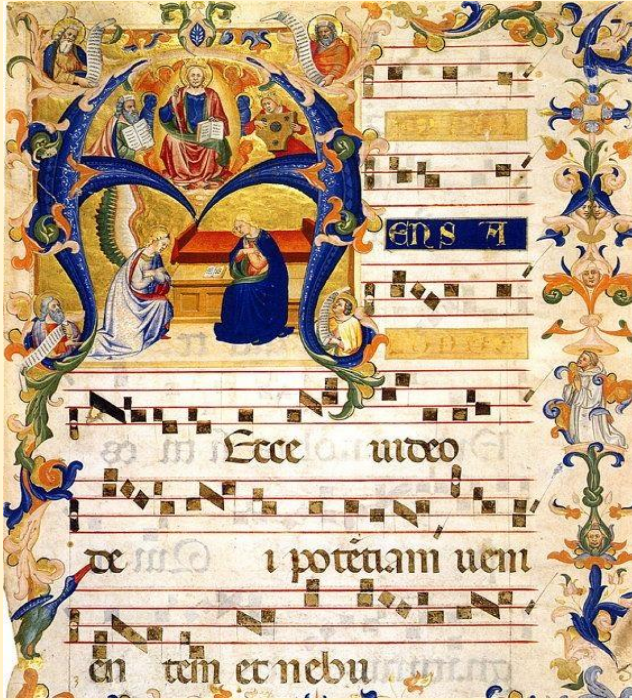 A
EN S A
Ecce uideo
de i potētiam ueni
en tem et nebu